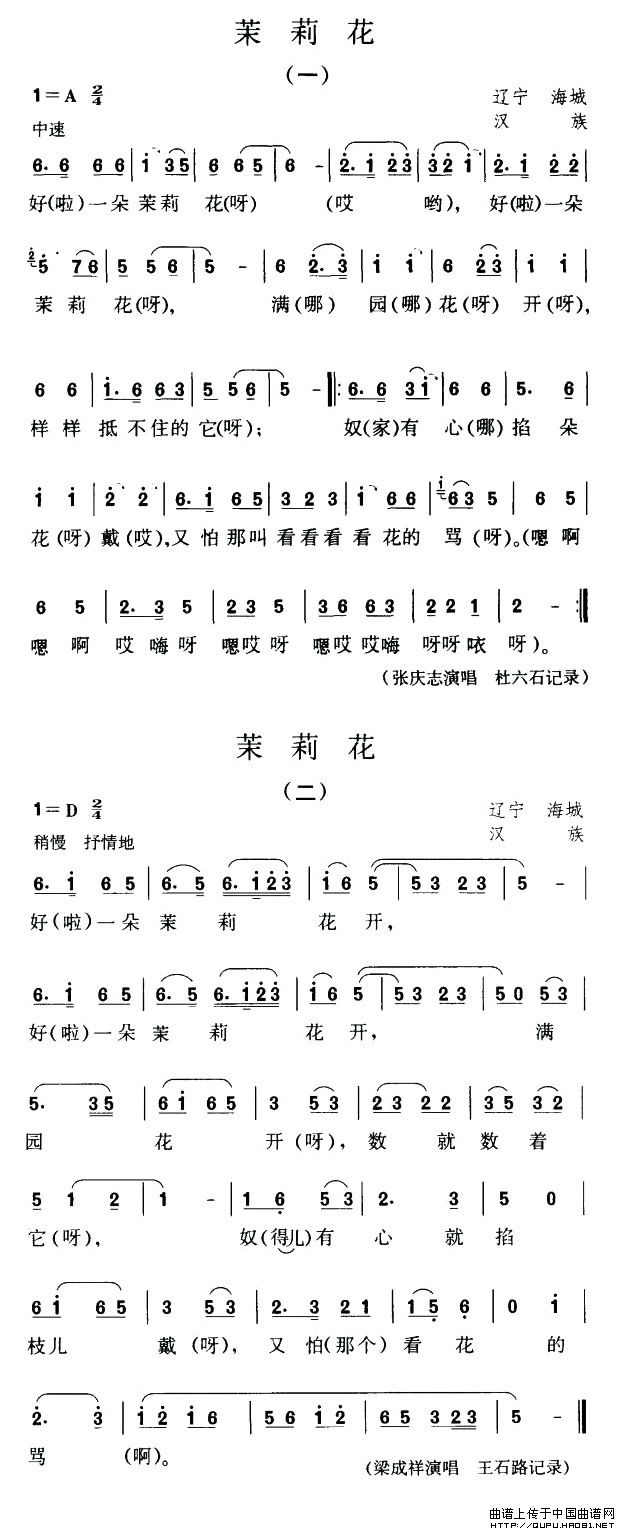 茉莉花
(一)
1=A 2/4
辽宁 海城
汉 族
中速
6. 6 6 6 | i 3 5 | 6 6 5 | 6 - | 2. i 2 3 | 3 2 i | 2. i 2 2 |
好(啦)一朵 茉莉 花(呀) (哎 哟), 好(啦)一朵
5 7 6 | 5 5 6 | 5 - | 6 2. 3 | i i | 6 2 3 | i i |
茉莉 花(呀), 满(哪) 园(哪)花(呀) 开(呀),
6 6 | i. 6 6 3 | 5 5 6 | 5 - |: 6. 6 3 i | 6 6 | 5. 6 |
样样 抵不住的 它(呀); 奴(家)有 心(哪) 掐 朵
i i | 2 2 | 6. i 6 5 | 3 2 3 | i 6 6 | 6 3 5 | 6 5 |
花(呀) 戴(哎),又怕那叫看看看看花的 骂(呀)。(嗯啊
6 5 | 2. 3 5 | 2 3 5 | 3 6 6 3 | 2 2 1 | 2 - :|
嗯啊 哎嗨呀 嗯哎呀 嗯哎哎嗨 呀呀咴 呀)。
(张庆志演唱 杜六石记录)
茉莉花
(二)
1=D 2/4
辽宁 海城
汉 族
稍慢 抒情地
6. i 6 5 | 6. 5 6. i 2 3 | i 6 5 | 5 3 2 3 | 5 - |
好(啦)一朵 茉 莉 花开,
6. i 6 5 | 6. 5 6. i 2 3 | i 6 5 | 5 3 2 3 | 5 0 5 3 |
好(啦)一朵 茉 莉 花开, 满
5. 3 5 | 6 i 6 5 | 3 5 3 | 2 3 2 2 | 3 5 3 2 |
园 花 开(呀), 数 就数着
5 1 2 | 1 - | 1 6 5 3 | 2. 3 | 5 0 |
它(呀), 奴(得儿)有 心 就 掐
6 i 6 5 | 3 5 3 | 2. 3 2 1 | 1 5 6 | 0 i |
枝儿 戴(呀),又 怕(那个)看 花 的
2. 3 | i 2 i 6 | 5 6 i 2 | 6 5 3 2 3 | 5 - ‖
骂 (啊)。
(梁成祥演唱 王石路记录)
曲谱上传于中国曲谱网
HTTP://QUPU.HAO81.NET